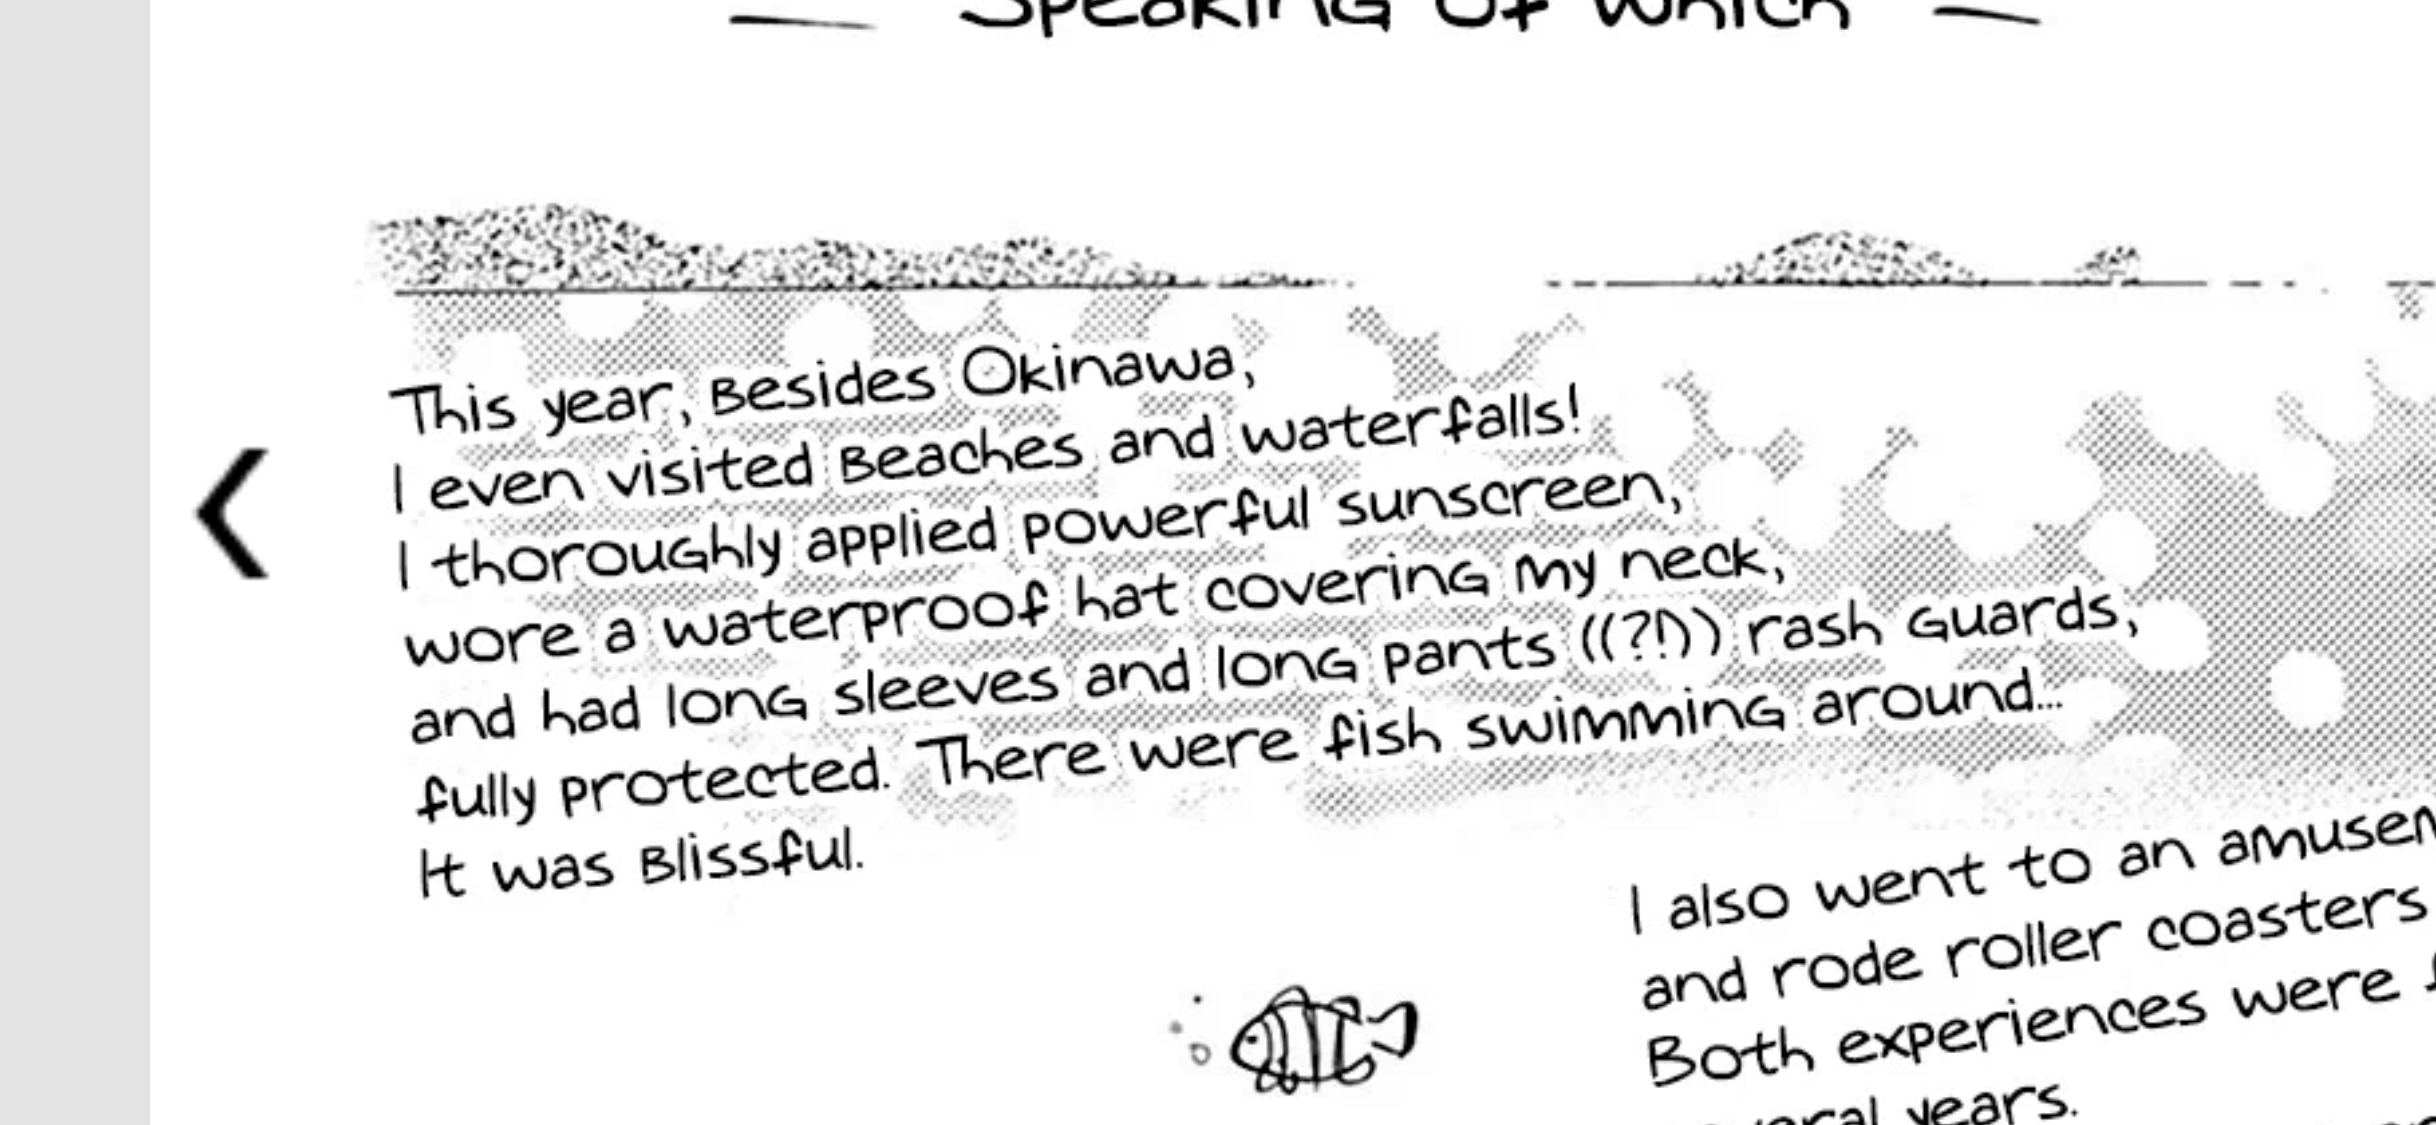 — Speaking of which —
This year, Besides Okinawa,
I even visited Beaches and waterfalls!
I thoroughly applied powerful sunscreen,
wore a waterproof hat covering my neck,
and had long sleeves and long pants ((?!)) rash guards,
fully protected. There were fish swimming around...
It was Blissful.
I also went to an
and rode roller coasters
Both experiences were
years.